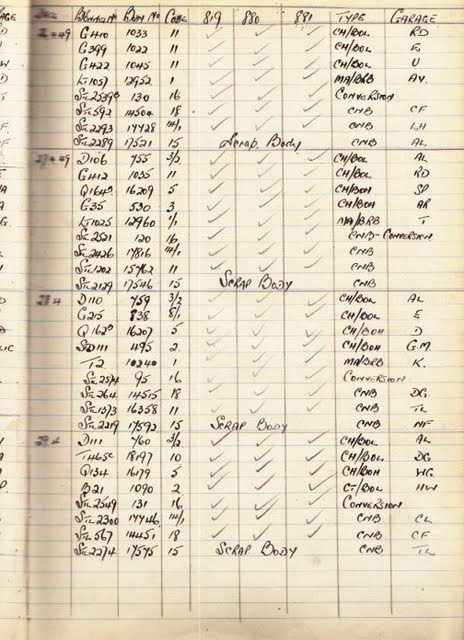 BONNET No BODY No CODE 819 880 881 TYPE GARAGE
G440 1033 11 ✓ ✓ ✓ CH/BOL RD
G399 1022 11 ✓ ✓ ✓ CH/BOL E
G422 1045 11 ✓ ✓ ✓ CH/BOL U
LT1051 12952 1 ✓ ✓ ✓ MA/BRB AV.
STL2539 130 16 ✓ ✓ ✓ CONVERSION
STL592 14504 18 ✓ ✓ ✓ CNB CF
STL2293 17428 14/1 ✓ ✓ ✓ CNB LH
STL2289 17521 15 Scrap Body CNB AL
D106 755 3/2 ✓ ✓ ✓ CH/BOL AL
G412 1035 11 ✓ ✓ ✓ CH/BOL RD
Q164 16209 5 ✓ ✓ ✓ CH/BOH SP
G35 530 3 ✓ ✓ ✓ CH/BOH AR
LT1025 12960 1/1 ✓ ✓ ✓ MA/BRB T
STL2521 120 16 ✓ ✓ ✓ CNB-CONVERSION
STL2426 17816 14/1 ✓ ✓ ✓ CNB
STL1202 15762 11 ✓ ✓ ✓ CNB
STL2129 17546 15 SCRAP BODY CNB
D110 759 3/2 ✓ ✓ ✓ CH/BOL AL
G215 838 8/1 ✓ ✓ ✓ CH/BOL E
Q162 16207 5 ✓ ✓ ✓ CH/BOH D
SD111 495 2 ✓ ✓ ✓ CH/BOH G.M.
T2 10240 1 ✓ ✓ ✓ MA/BRB K.
STL2574 95 16 ✓ ✓ ✓ CONVERSION
STL264 14515 18 ✓ ✓ ✓ CNB DG.
STL1573 16358 11 ✓ ✓ ✓ CNB TL
STL2219 17592 15 SCRAP BODY CNB NF
D111 760 3/2 ✓ ✓ ✓ CH/BOL AL
T465 18197 10 ✓ ✓ ✓ CH/BOL DG
Q134 16179 5 ✓ ✓ ✓ CH/BOH WG.
B21 1090 2 ✓ ✓ ✓ CF/BOL HW
STL2549 131 16 ✓ ✓ ✓ CONVERSION
STL2300 17746 14/1 ✓ ✓ ✓ CNB CL
STL567 14451 18 ✓ ✓ ✓ CNB CF
STL2274 17575 15 SCRAP BODY CNB TL